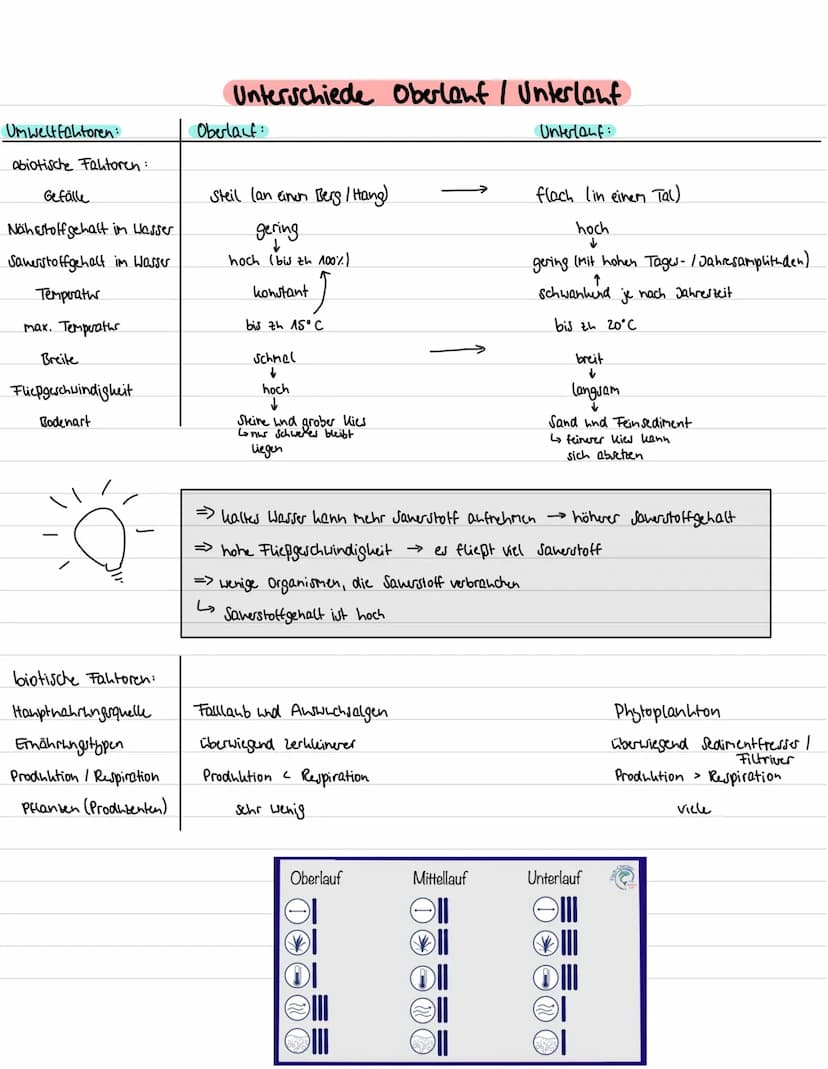 Unterschiede Oberlauf / Unterlauf
Umweltfaktoren: Oberlauf: Unterlauf:
abiotische Faktoren:
Gefälle steil (an einen Berg / Hang) → flach (in einem Tal)
Nährstoffgehalt im Wasser gering hoch
↓ ↓
Sauerstoffgehalt im Wasser hoch (bis zu 100%) gering (mit hohen Tages- / Jahresamplituden)
↑
Temperatur konstant schwankend je nach Jahreszeit
max. Temperatur bis zu 15°C bis zu 20°C
Breite schmal → breit
↓ ↓
Fließgeschwindigkeit hoch langsam
↓ ↓
Bodenart Steine und grober Kies Sand und Feinsediment
↳ nur schweres bleibt ↳ feinerer Kies kann
liegen sich absetzen
⇒ kaltes Wasser kann mehr Sauerstoff aufnehmen → höherer Sauerstoffgehalt
⇒ hohe Fließgeschwindigkeit → es fließt viel Sauerstoff
⇒ wenige Organismen, die Sauerstoff verbrauchen
↳ Sauerstoffgehalt ist hoch
biotische Faktoren:
Hauptnahrungsquelle Falllaub und Aufwuchsalgen Phytoplankton
Ernährungstypen überwiegend Zerkleinerer überwiegend Sedimentfresser /
Filtrierer
Produktion / Respiration Produktion < Respiration Produktion > Respiration
Pflanzen (Produzenten) sehr wenig viele
Oberlauf Mittellauf Unterlauf